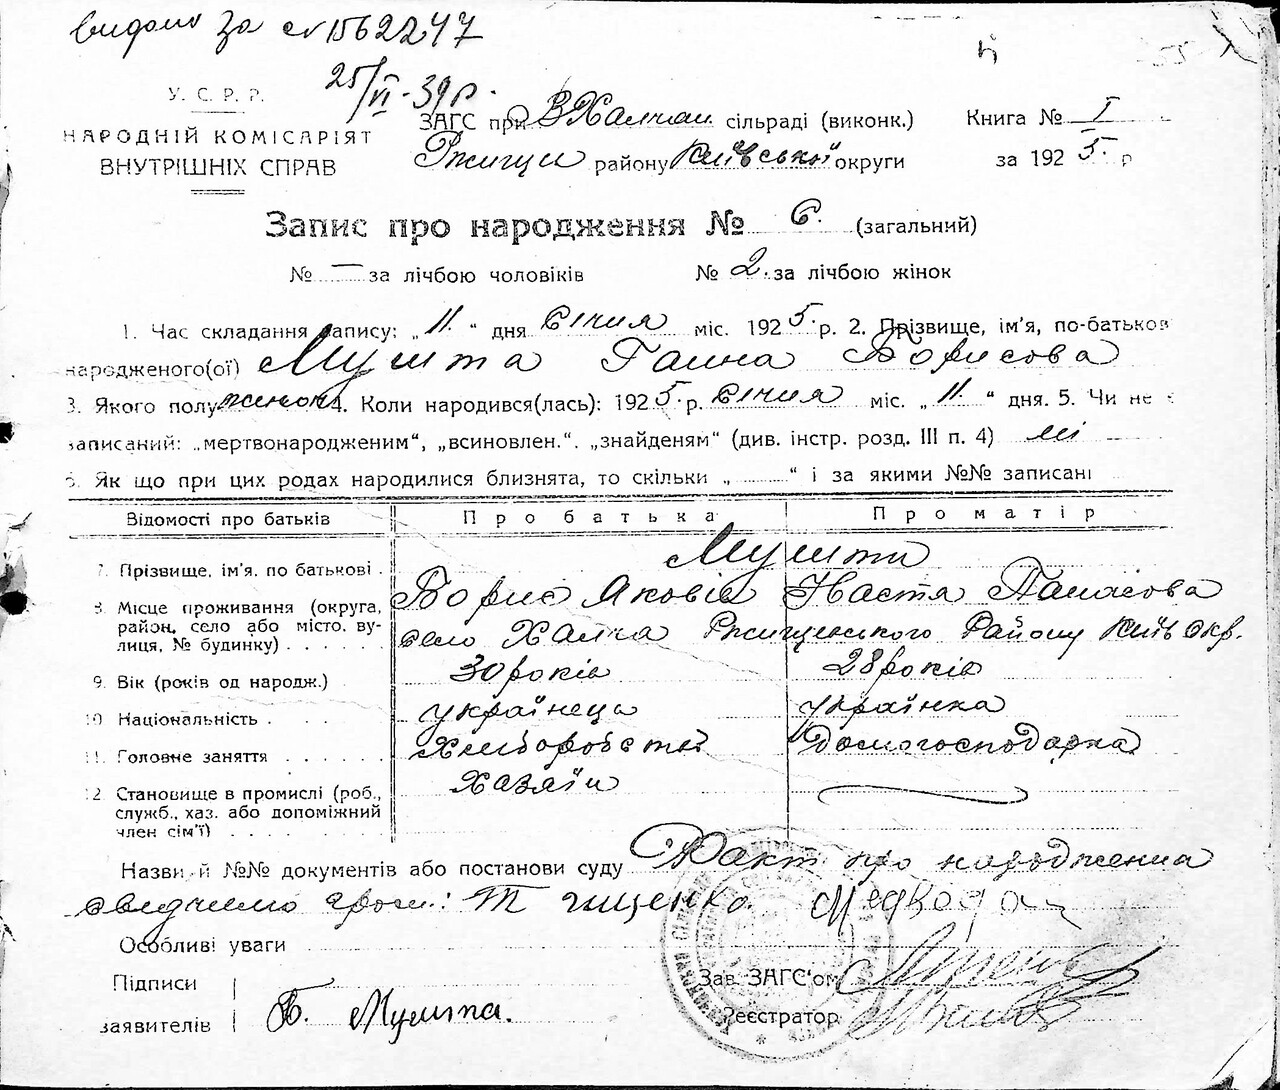 видано за № 1562247
25/VI-39 р.
У. С. Р. Р.
НАРОДНІЙ КОМІСАРІЯТ
ВНУТРІШНІХ СПРАВ
ЗАГС при В Халчан сільраді (виконк.)
Ржищи району Київської округи
Книга № I
за 1925. р
Запис про народження № 6. (загальний)
№ — за лічбою чоловіків № 2. за лічбою жінок
1. Час складання запису: „11.“ дня Січня міс. 1925. р. 2. Прізвище, ім’я, по-батьков
народженого(ої) Мушта Ганна Борисова
3. Якого полу жіноч 4. Коли народився(лась): 1925. р. Січня міс. „11.“ дня. 5. Чи не є
записаний: „мертвонародженим“, „всиновлен.“. „знайденям“ (див. інстр. розд. III п. 4) ні
6. Як що при цих родах народилися близнята, то скільки „ “ і за якими №№ записані
Відомості про батьків Про батька Про матір
Мушти
7. Прізвище, ім’я, по батькові . Борис Яковів Настя Панасова
8. Місце проживання (округа, район, село або місто, вулиця, № будинку) . . . . . село Халча Ржищенського Району Київ Окр.
9. Вік (років од народж.) 30 років 28 років
10 Національність . . . . українець українка
11. Головне заняття . . . . . . Хліборобство домогосподарка
12. Становище в промислі (роб., Хазяїн
служб., хаз. або допоміжний
член сім’ї) . . . . .
Назви й №№ документів або постанови суду Факт про народження
свідчимо гром.: Тищенко. Медвода
Особливі уваги
Підписи
заявителів Б. Мушта.
Зав. ЗАГС'ом
Реєстратор